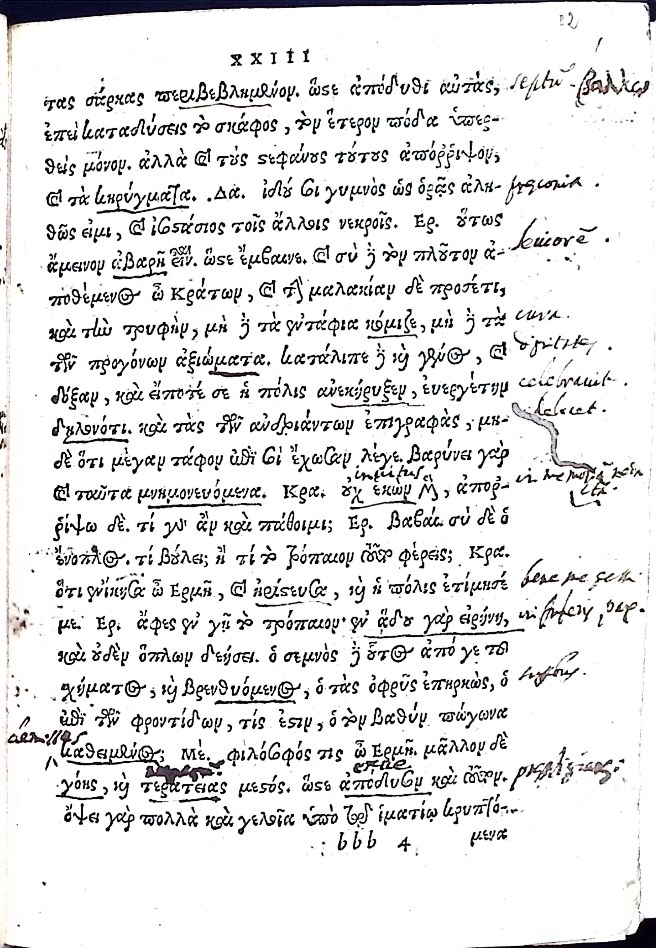 22
XXIII
τας σάρκας περιβεβλημένον. ὥστε ἀπόδυθι αὐτάς,
ἐπεὶ καταδύσεις τὸ σκάφος, τὸν ἕτερον πόδα ὑπερ-
θεὶς μόνον. ἀλλὰ καὶ τοὺς στεφάνους τούτους ἀπόρριψον,
καὶ τὰ κηρύγματα. Δα. ἰδού σοι γυμνὸς ὡς ὁρᾷς ἀλη-
θῶς εἰμι, καὶ ἰσοστάσιος τοῖς ἄλλοις νεκροῖς. Ερ. οὕτως
ἄμεινον ἀβαρῆ εἶναι. ὥστε ἔμβαινε. καὶ σὺ δὲ τὸν πλοῦτον ἀ-
ποθέμενος ὦ Κράτων, καὶ τὴν μαλακίαν δὲ προσέτι,
καὶ τὴν τρυφὴν, μὴ δὲ τὰ ἐντάφια κόμιζε, μὴ δὲ τὰ
τῶν προγόνων ἀξιώματα. κατάλιπε δὲ καὶ γένος, καὶ
δόξαν, καὶ εἴποτέ σε ἡ πόλις ἀνεκήρυξεν, εὐεργέτην
δηλονότι. καὶ τὰς τῶν ἀνδριάντων ἐπιγραφὰς, μη-
δὲ ὅτι μέγαν τάφον ἐπὶ σοὶ ἔχωσαν λέγε. βαρύνει γὰρ
καὶ ταῦτα μνημονευόμενα. Κρα. οὐχ ἑκὼν μὲν, ἀπορ-
ρίψω δέ. τί γὰρ ἂν καὶ πάθοιμι; Ερ. Βαβαί. σὺ δὲ ὁ
ἔνοπλος. τί βούλει; ἢ τί τὸ τρόπαιον τοῦτο φέρεις; Κρα.
ὅτι ἐνίκησα ὦ Ερμῆ, καὶ ἠρίστευσα, καὶ ἡ πόλις ἐτίμησέ
με. Ερ. ἄφες ἐν γῇ τὸ τρόπαιον· ἐν ᾅδου γὰρ εἰρήνη,
καὶ οὐδὲν ὅπλων δεήσει. ὁ σεμνὸς δὲ οὗτος ἀπό γε τοῦ
σχήματος, καὶ βρενθυόμενος, ὁ τὰς ὀφρῦς ἐπηρκὼς, ὁ
ἐπὶ τῶν φροντίδων, τίς ἐστιν, ὁ τὸν βαθὺν πώγωνα
καθειμένος; Μέ. φιλόσοφός τις ὦ Ερμῆ. μᾶλλον δὲ
γόης, καὶ τερατείας μεστός. ὥστε ἀπόδυσον καὶ τοῦτον.
ὄψει γὰρ πολλὰ καὶ γελοῖα ὑπὸ τῷ ἱματίῳ κρυπτό-
bbb 4 μενα